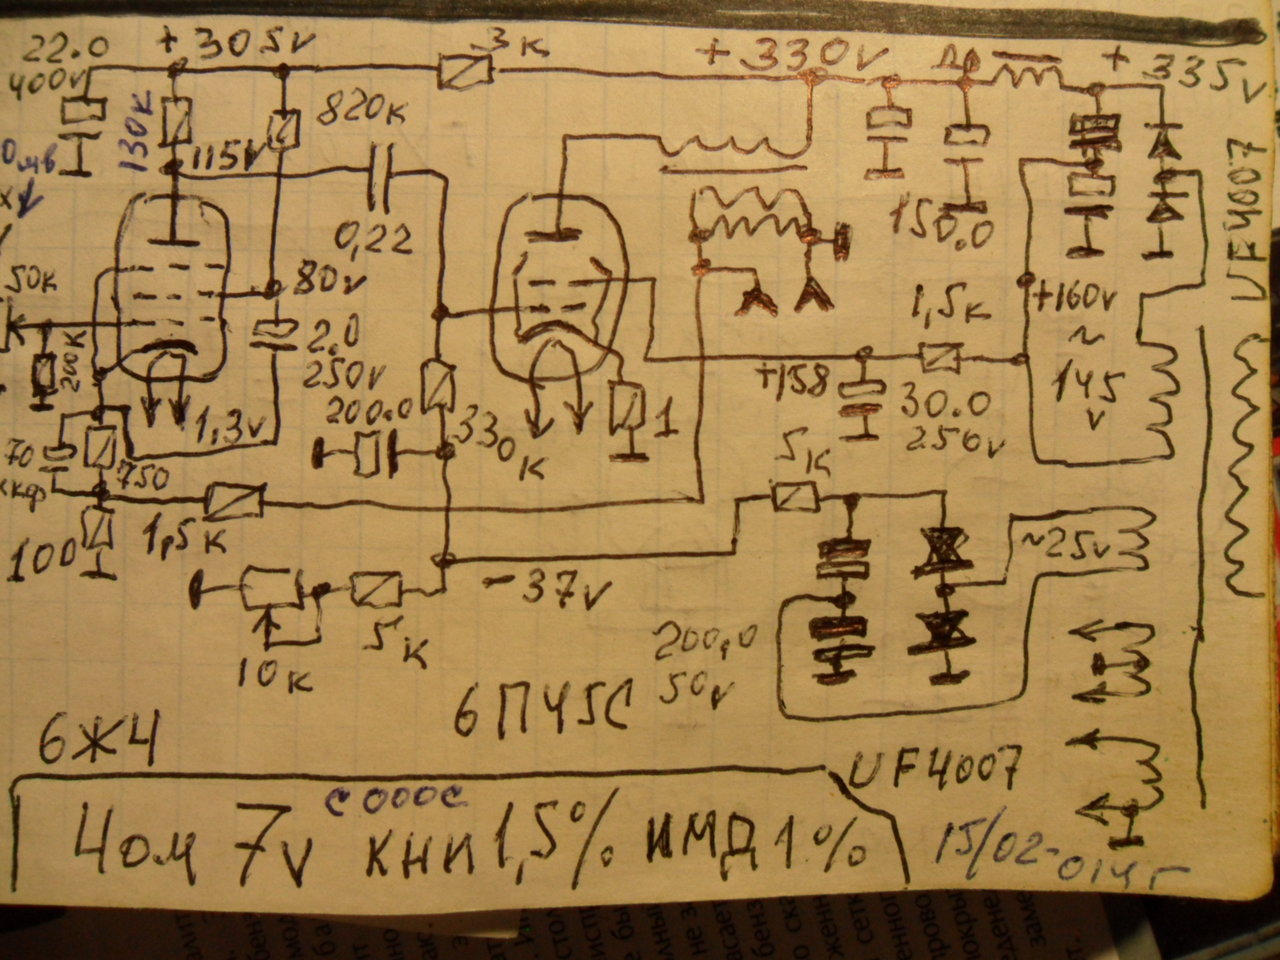 22.0
400v
+305v
3к
+330v
+
335v
130к
820к
115v
0,22
150.0
UF4007
50к
200к
80v
2.0
250v
1,5к
+160v
~
145
v
+158
30.0
250v
200.0
1,3v
330
к
1
5к
70
750
100
1,5к
-37v
~25v
10к
5к
200,0
50v
6П45С
6Ж4
UF4007
4ом 7v КНИ 1,5% ИМД 1%
15/02-014г